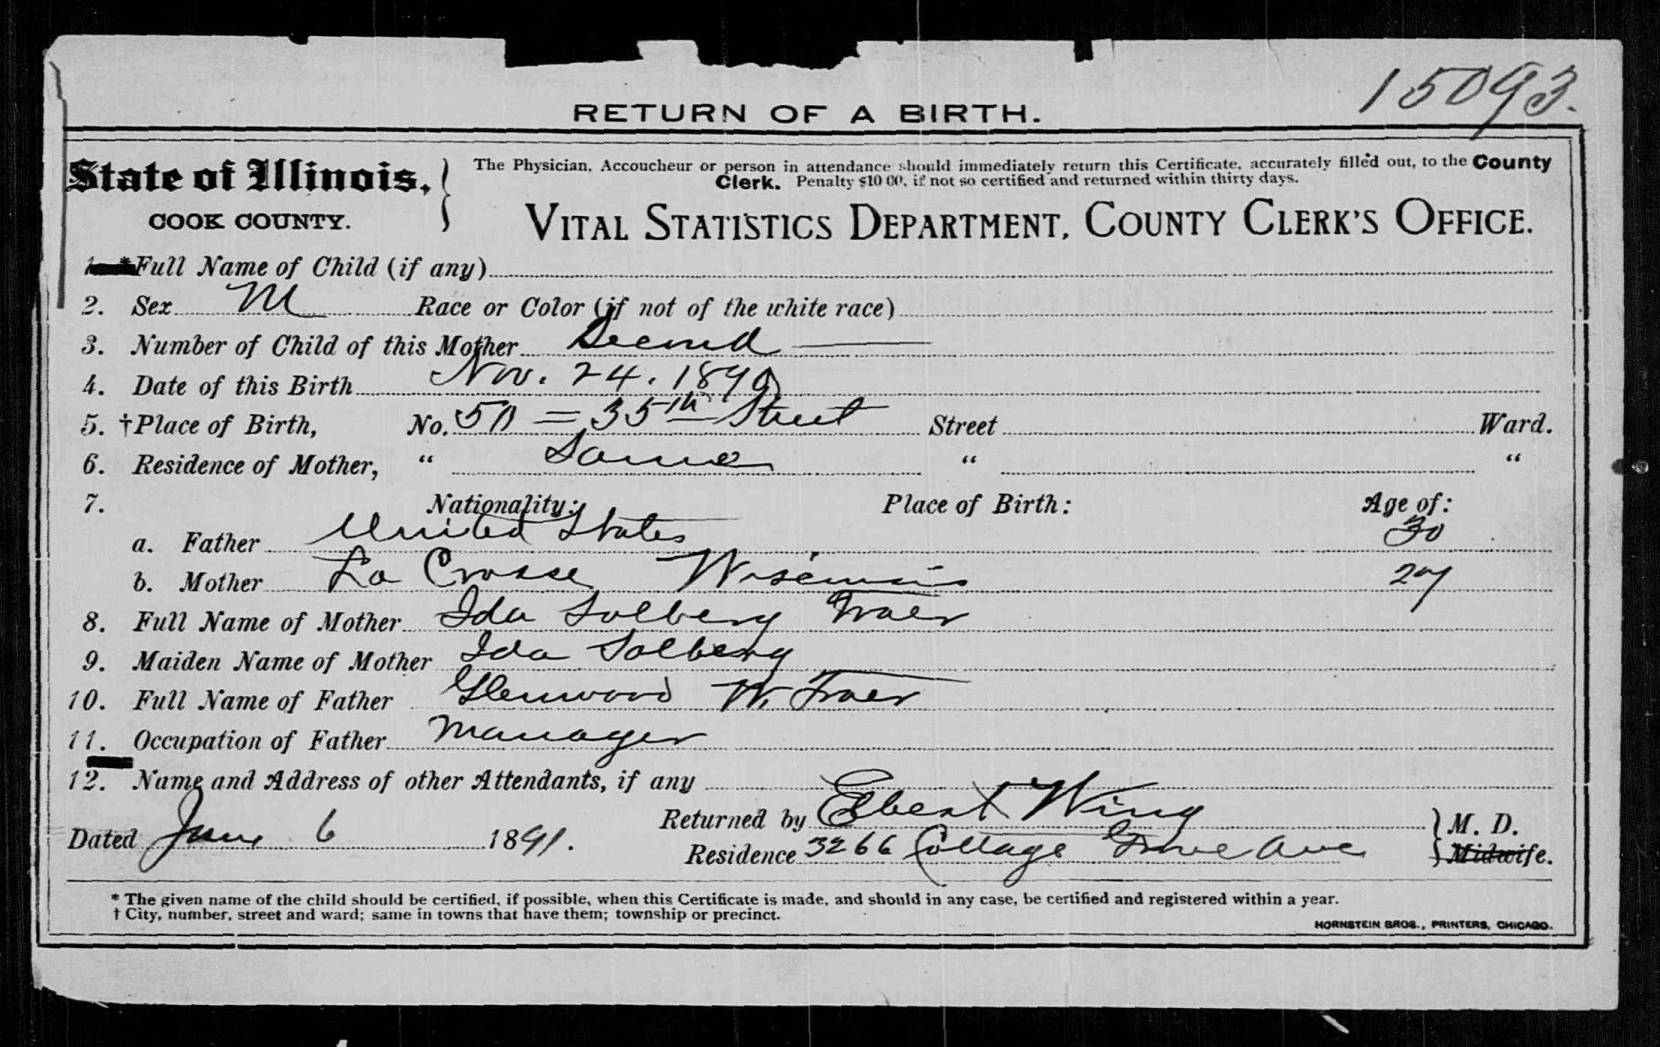 15093.
RETURN OF A BIRTH.
State of Illinois,
COOK COUNTY.
The Physician, Accoucheur or person in attendance should immediately return this Certificate, accurately filled out, to the County
Clerk. Penalty $10 00, if not so certified and returned within thirty days.
VITAL STATISTICS DEPARTMENT, COUNTY CLERK'S OFFICE.
1. *Full Name of Child (if any)
2. Sex M Race or Color (if not of the white race)
3. Number of Child of this Mother Second
4. Date of this Birth Nov. 24. 1890
5. †Place of Birth, No. 50 = 35th Street Street Ward.
6. Residence of Mother, " Same " "
7. Nationality: Place of Birth: Age of:
a. Father United States 30
b. Mother La Crosse Wisconsin 27
8. Full Name of Mother Ida Solberg Traer
9. Maiden Name of Mother Ida Solberg
10. Full Name of Father Glenwood W. Traer
11. Occupation of Father Manager
12. Name and Address of other Attendants, if any
Dated June 6 1891. Returned by Elbert Wing M. D.
Residence 3266 Cottage Grove Ave Midwife.
* The given name of the child should be certified, if possible, when this Certificate is made, and should in any case, be certified and registered within a year.
† City, number, street and ward; same in towns that have them; township or precinct.
HORNSTEIN BROS., PRINTERS, CHICAGO.